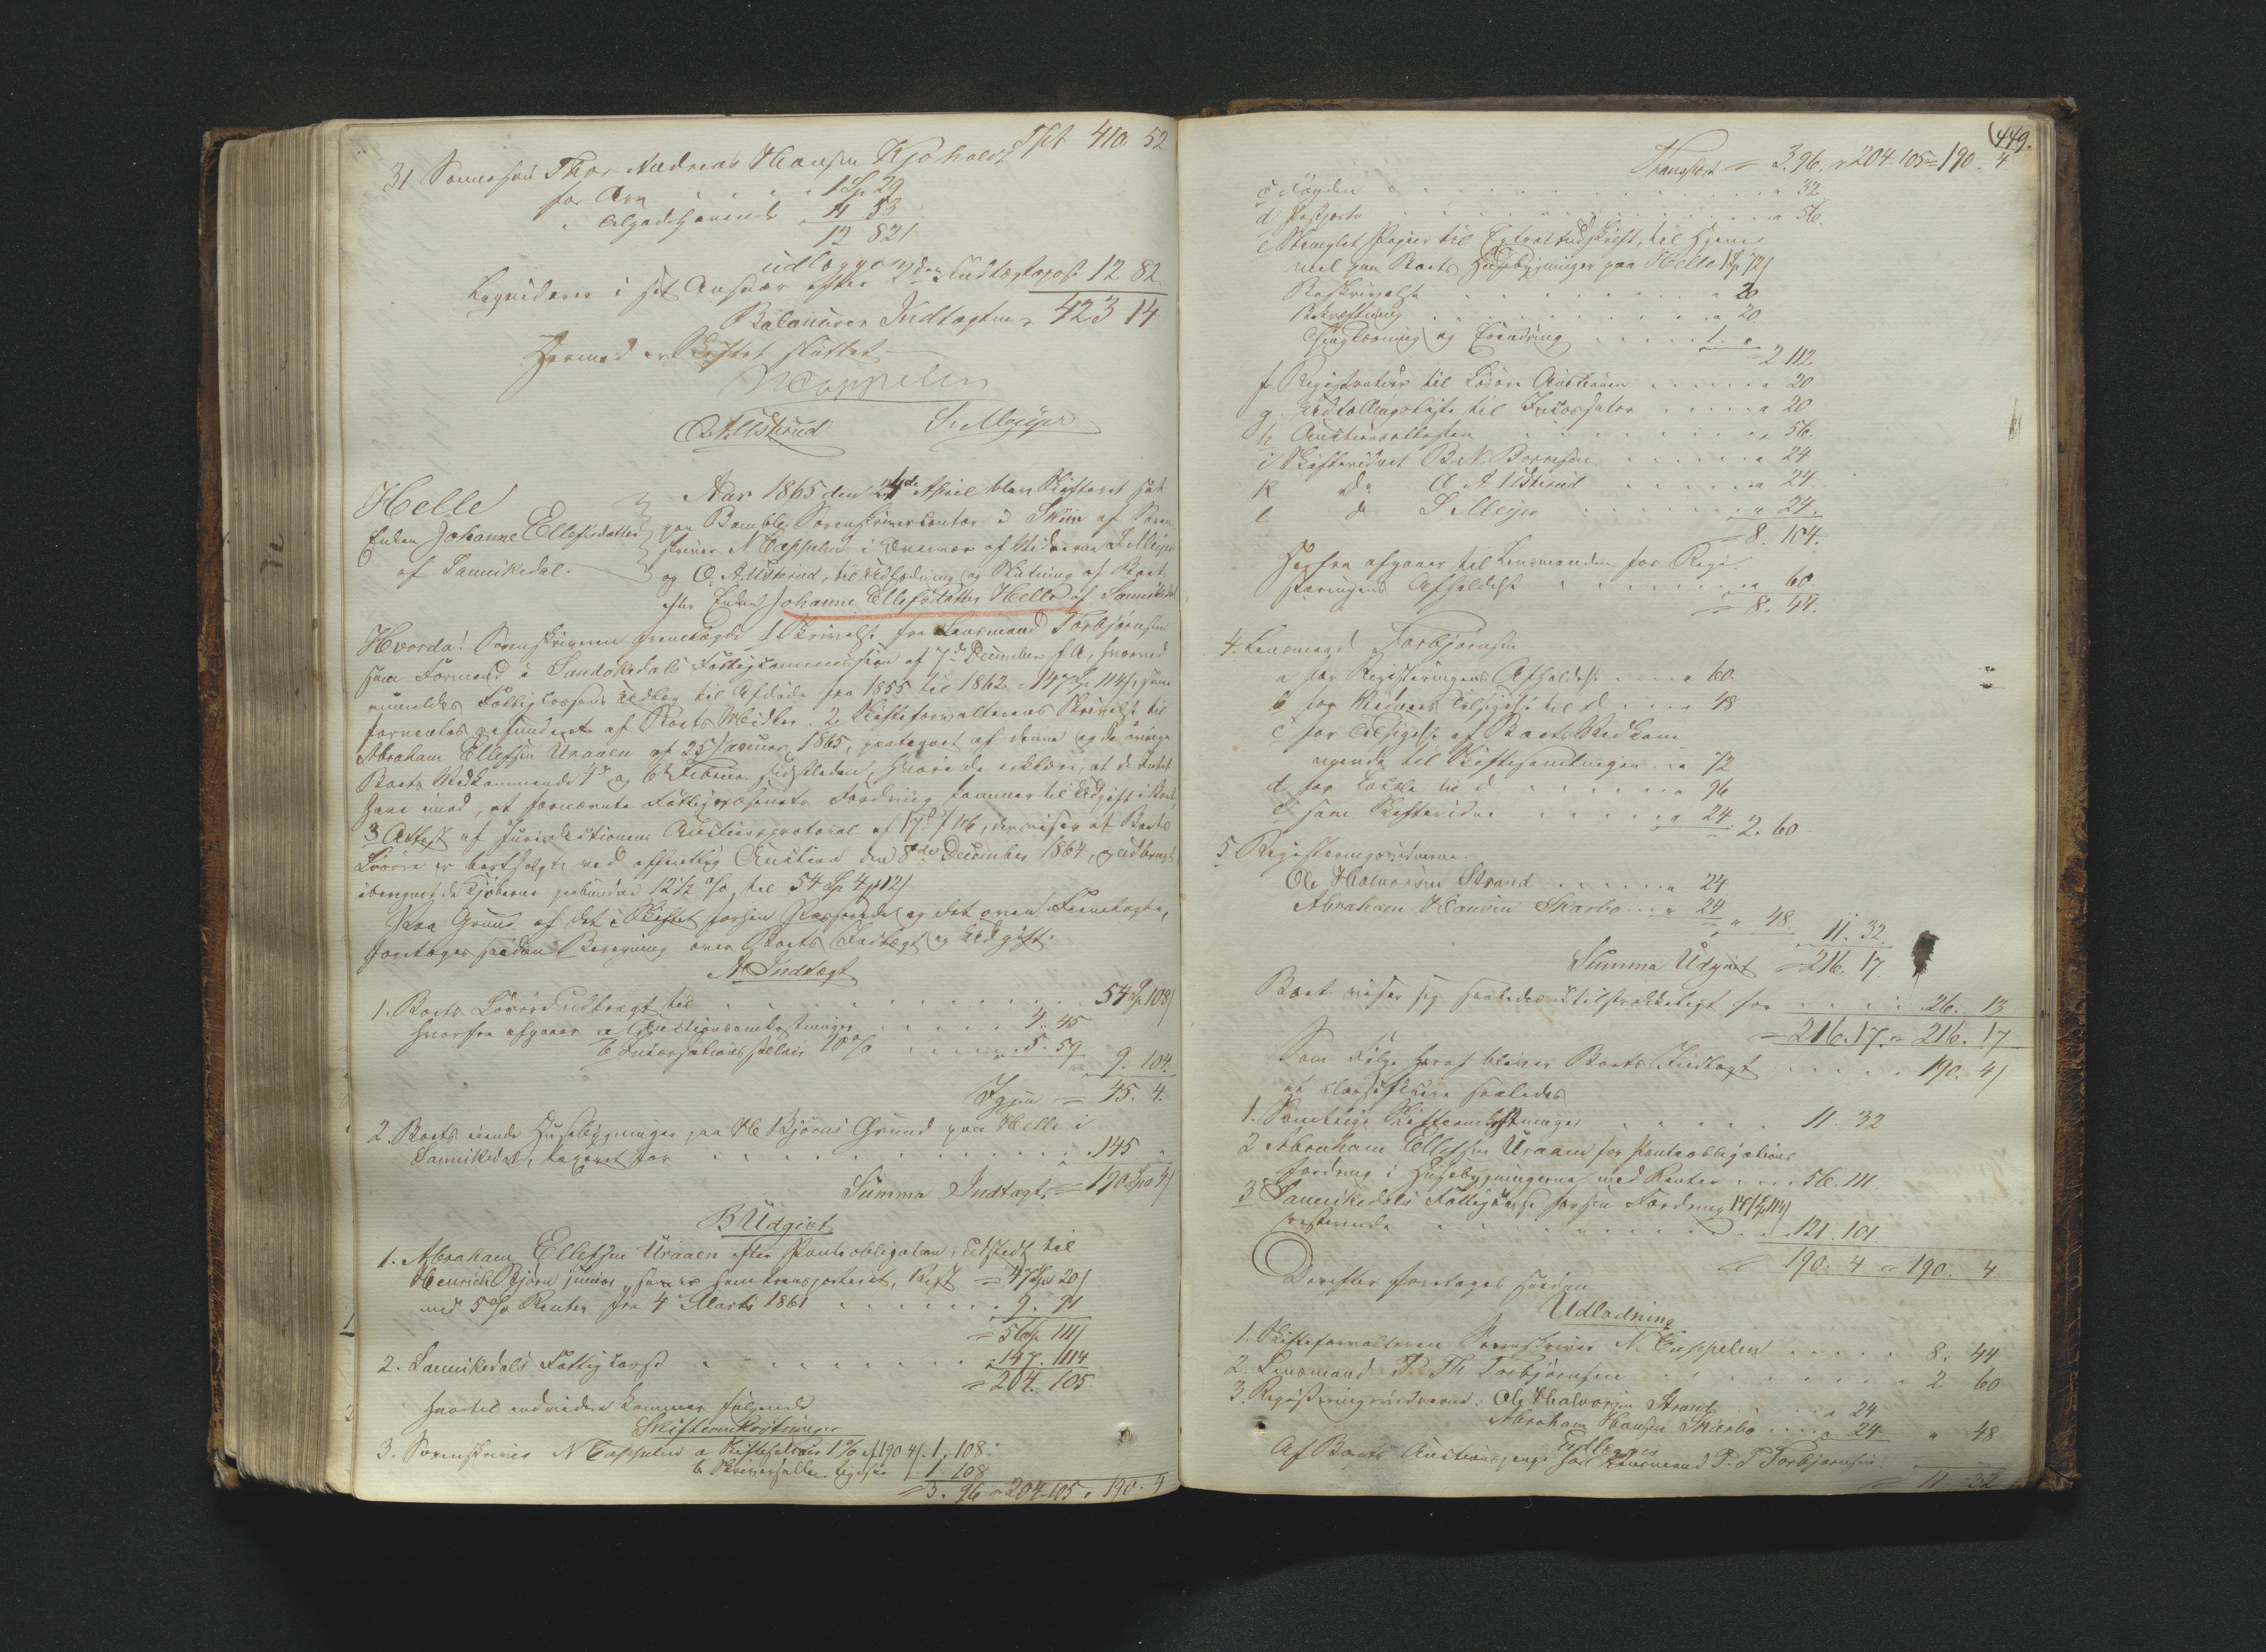 Tpt 410 52
31 Sønnesøn Thor Andreas Hansen Kjøholdt
for Arv . . . . 1 Sp 29
" 11 53
12 82/
udlægges
i sit Ansvar efter 2den Indtægtspost 12 82
Balancerer Indtægten = 423 14
Hermed er Skiftet sluttet
NCappelen
O. A. Ulstrud S. Meyer
Helle
Enken Johanne Ellefsdatter
af Sannikedal.
Aar 1865 den 24de April blev Skifteret sat
paa Bamble Sorenskrivercontor i Skien af Soren-
skriver N Cappelen i Overvær af Vidnerne S Meyer
og O. A. Ulstrud, til Udlodning og Slutning af Boet
efter Enken Johanne Ellefsdatter Helle af Sannikedal
Hvorda! Sorenskriveren fremlagde 1 Skrivelse fra Lensmand Torbjørnsen
som Formand i Sandøkedals Fattigcommission af 7de December f. A., hvorved
anmeldes Fattigkassens Udlæg til Afdøde fra 1855 til 1862 = 147 Sp 114/, som
forventes refunderet af Boets Midler. 2. Skifteforvalterens Skrivelse til
Abraham Ellefsen Uraaen af 25 Januar 1865, paategnet af denne og de øvrige
Boets Vedkommende 4de og 6te Februar sidstleden, hvori de erklære, at de Intet
have imod, at fornævnte Fattigvæsenets Fordring kommer til Udgift i Boet,
3 Attest af Jurisdictionens Auctionsprotocol af 17de , der viser at Boets
Løsøre er bortsolgte ved offentlig Auction den 8de December 1864, og udbragt
iberegnet de Kjøberne paabudne 12 1/2 %, til 54 Sp 4 12/
Paa Grund af det i Skiftet forhen Passerede og det oven Fremlagte,
foretages saadan Beregning over Boets Indtægt og Udgift:
A Indtægt
1. Boets Løsøre udbragt til . . . . . . . 54 Sp 108/
hvorfra afgaaer a Auctionsomkostninger . . . . . 4. 45
b Incassationssallair 10 % . . . . . 5. 59
9. 104.
Igjen = 45. 4.
2. Boets eiende Husebygninger paa H Bjørns Grund paa Helle i
Sannikedal, taxeret for . . . . . . . . . 145 "
Summa Indtægt = 190 Sp 4/
B Udgivt
1. Abraham Ellefsen Uraaen efter Panteobligation, udstedt til
Henrich Bjørn junior, som er ham transporteret, Rest = 47 Sp 20/
med 5 % Renter fra 4 Marts 1861 . . . . . . . 9. 91
= 56 Sp 111/
2. Sannikedals Fattigkasse . . . . . . . . . 147. 114
= 204. 105.
hvortil endvidere kommer følgende
Skifteomkostninger
3. Sorenskriver N Cappelen a Skiftesallair 1 % af 190 4/. 1. 108.
b Skriversallair ligesaa 1. 108
= 3. 96 = 204-105 = 190. 4
449.
Transport = 3. 96. = 204 105 = 190. 4
c Kosten . . . . . . . . . " 32
d Postporto . . . . . . . . . " 56.
e Stemplet Papiir til Extraktudskrift, til Hjem-
mel paa Boets Husebygninger paa Helle 1 Sp 72/
Beskrivelse . . . . . . . . " 20
Bekræftning . . . . . . . . " 20.
Thinglæsning og Erindring . . . . . 1. "
2 112.
f. Registratur til Løsøre Auctionen . . . . . " 20
g. Udtællingsliste til Incassator . . . . . " 20
h Auctionsattesten . . . . . . " 56.
i Skiftevidnet B. N. Borresen . . . . . " 24
k Do O. A Ulstrud . . . . . " 24.
l d S Meyer . . . . . . " 24.
= 8. 104.
Herfra afgaaer til Lensmanden for Regi-
streringens Afholdelse . . . . . . " 60
= 8. 44.
4. Lensmand Torbjørnsen
a for Registreringens Afholdelse . . . . " 60.
b for Vidners Tilsigelse til d . . . " 48
c for Tilsigelse af Boets Vedkom-
mende til Skiftesamlingen . . " 72
d for . . . . . . " 96
e som Skiftevidne . . . . . " 24
= 2. 60.
5 Registreringsvidnerne.
Ole Halvorsen Strand . . . . . . " 24
Abraham Hansen Skarbo . . . " 24
" 48. 11. 32.
Summa Udgivt = 216. 17.
Boet viser sig saaledes utilstrækkeligt for . . . . . 26. 13
= 216. 17. = 216. 17
Som Følge heraf bliver Boets Indtægt . . . . . 190. 4/
at classificere saaledes
1. Samtlige Skifteomkostninger . . . . . 11. 32
2 Abraham Ellefsen Uraaen for Panteobligations-
fordring i Husebygningerne med Renter . . . . 56. 111.
3 Sannikedals Fattigkasse for sin Fordring 147 Sp 114/
resterende . . . . . . . . . 121. 101
= 190. 4 = 190. 4
Derefter foretages saadan
Udlodning
1. Skifteforvalteren Sorenskriver N. Cappelen . . . . . 8. 44
2. Lensmand P. Th Torbjørnsen . . . . . . . . 2 60
3. Registreringsvidnerne: Ole Halvorsen Strand . . . . . " 24
Abraham Hansen Skarbo . . . . " 24 " 48
Udlægges
Af Boets Auctionspenge hos Lensmand P. T Torbjørnsen: = 11 32